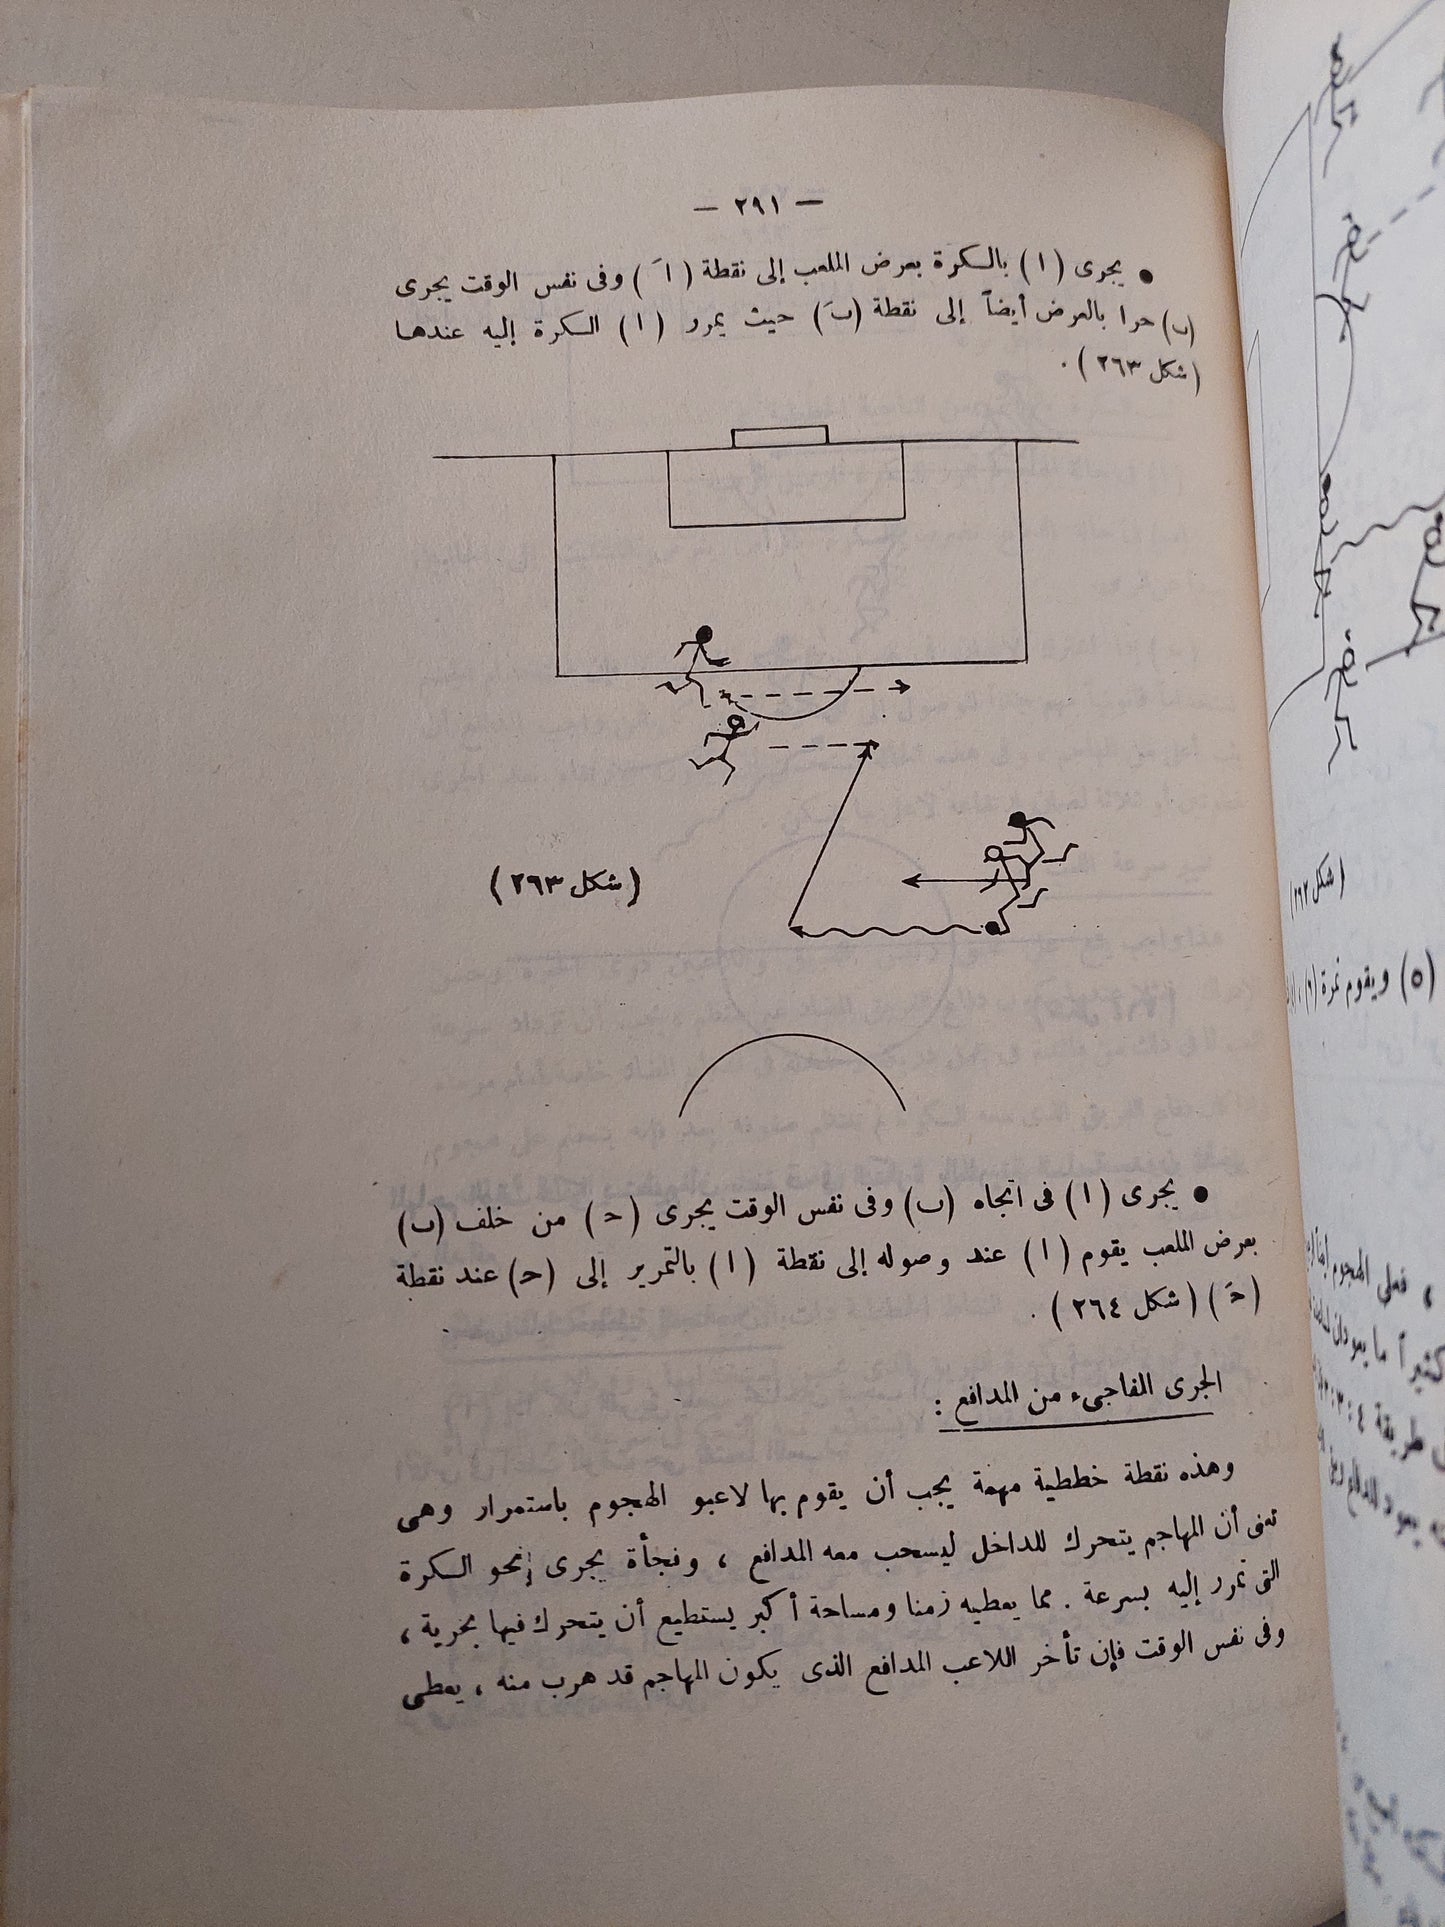 — ٢٩١ —
• يجرى (ا) بالكرة بعرض الملعب إلى نقطة (اَ) وفى نفس الوقت يجرى
(ب) حرا بالعرض أيضاً إلى نقطة (بَ) حيث يمرر (ا) الكرة إليه عندها
(شكل ٢٦٣).
(شكل ٢٦٣)
• يجرى (ا) فى اتجاه (ب) وفى نفس الوقت يجرى (ح) من خلف (ب)
بعرض الملعب يقوم (ا) عند وصوله إلى نقطة (ا) بالتمرير إلى (ح) عند نقطة
(حَ) (شكل ٢٦٤).
الجرى المفاجىء من المدافع :
وهذه نقطة خططية مهمة يجب أن يقوم بها لاعبو الهجوم باستمرار وهى
تعنى أن المهاجم يتحرك للداخل ليسحب معه المدافع ، وفجأة يجرى نحو الكرة
التى تمرر إليه بسرعة . مما يعطيه زمنا ومساحة أكبر يستطيع أن يتحرك فيها بحرية ،
وفى نفس الوقت فإن تأخر اللاعب المدافع الذى يكون المهاجم قد هرب منه ، يعطى
(شكل ٢٦٢)
(٥) ويقوم نمرة (٦)
، فعلى الهجوم
كثيراً ما يعودان
طريقة ٤ : ٣ : ٣